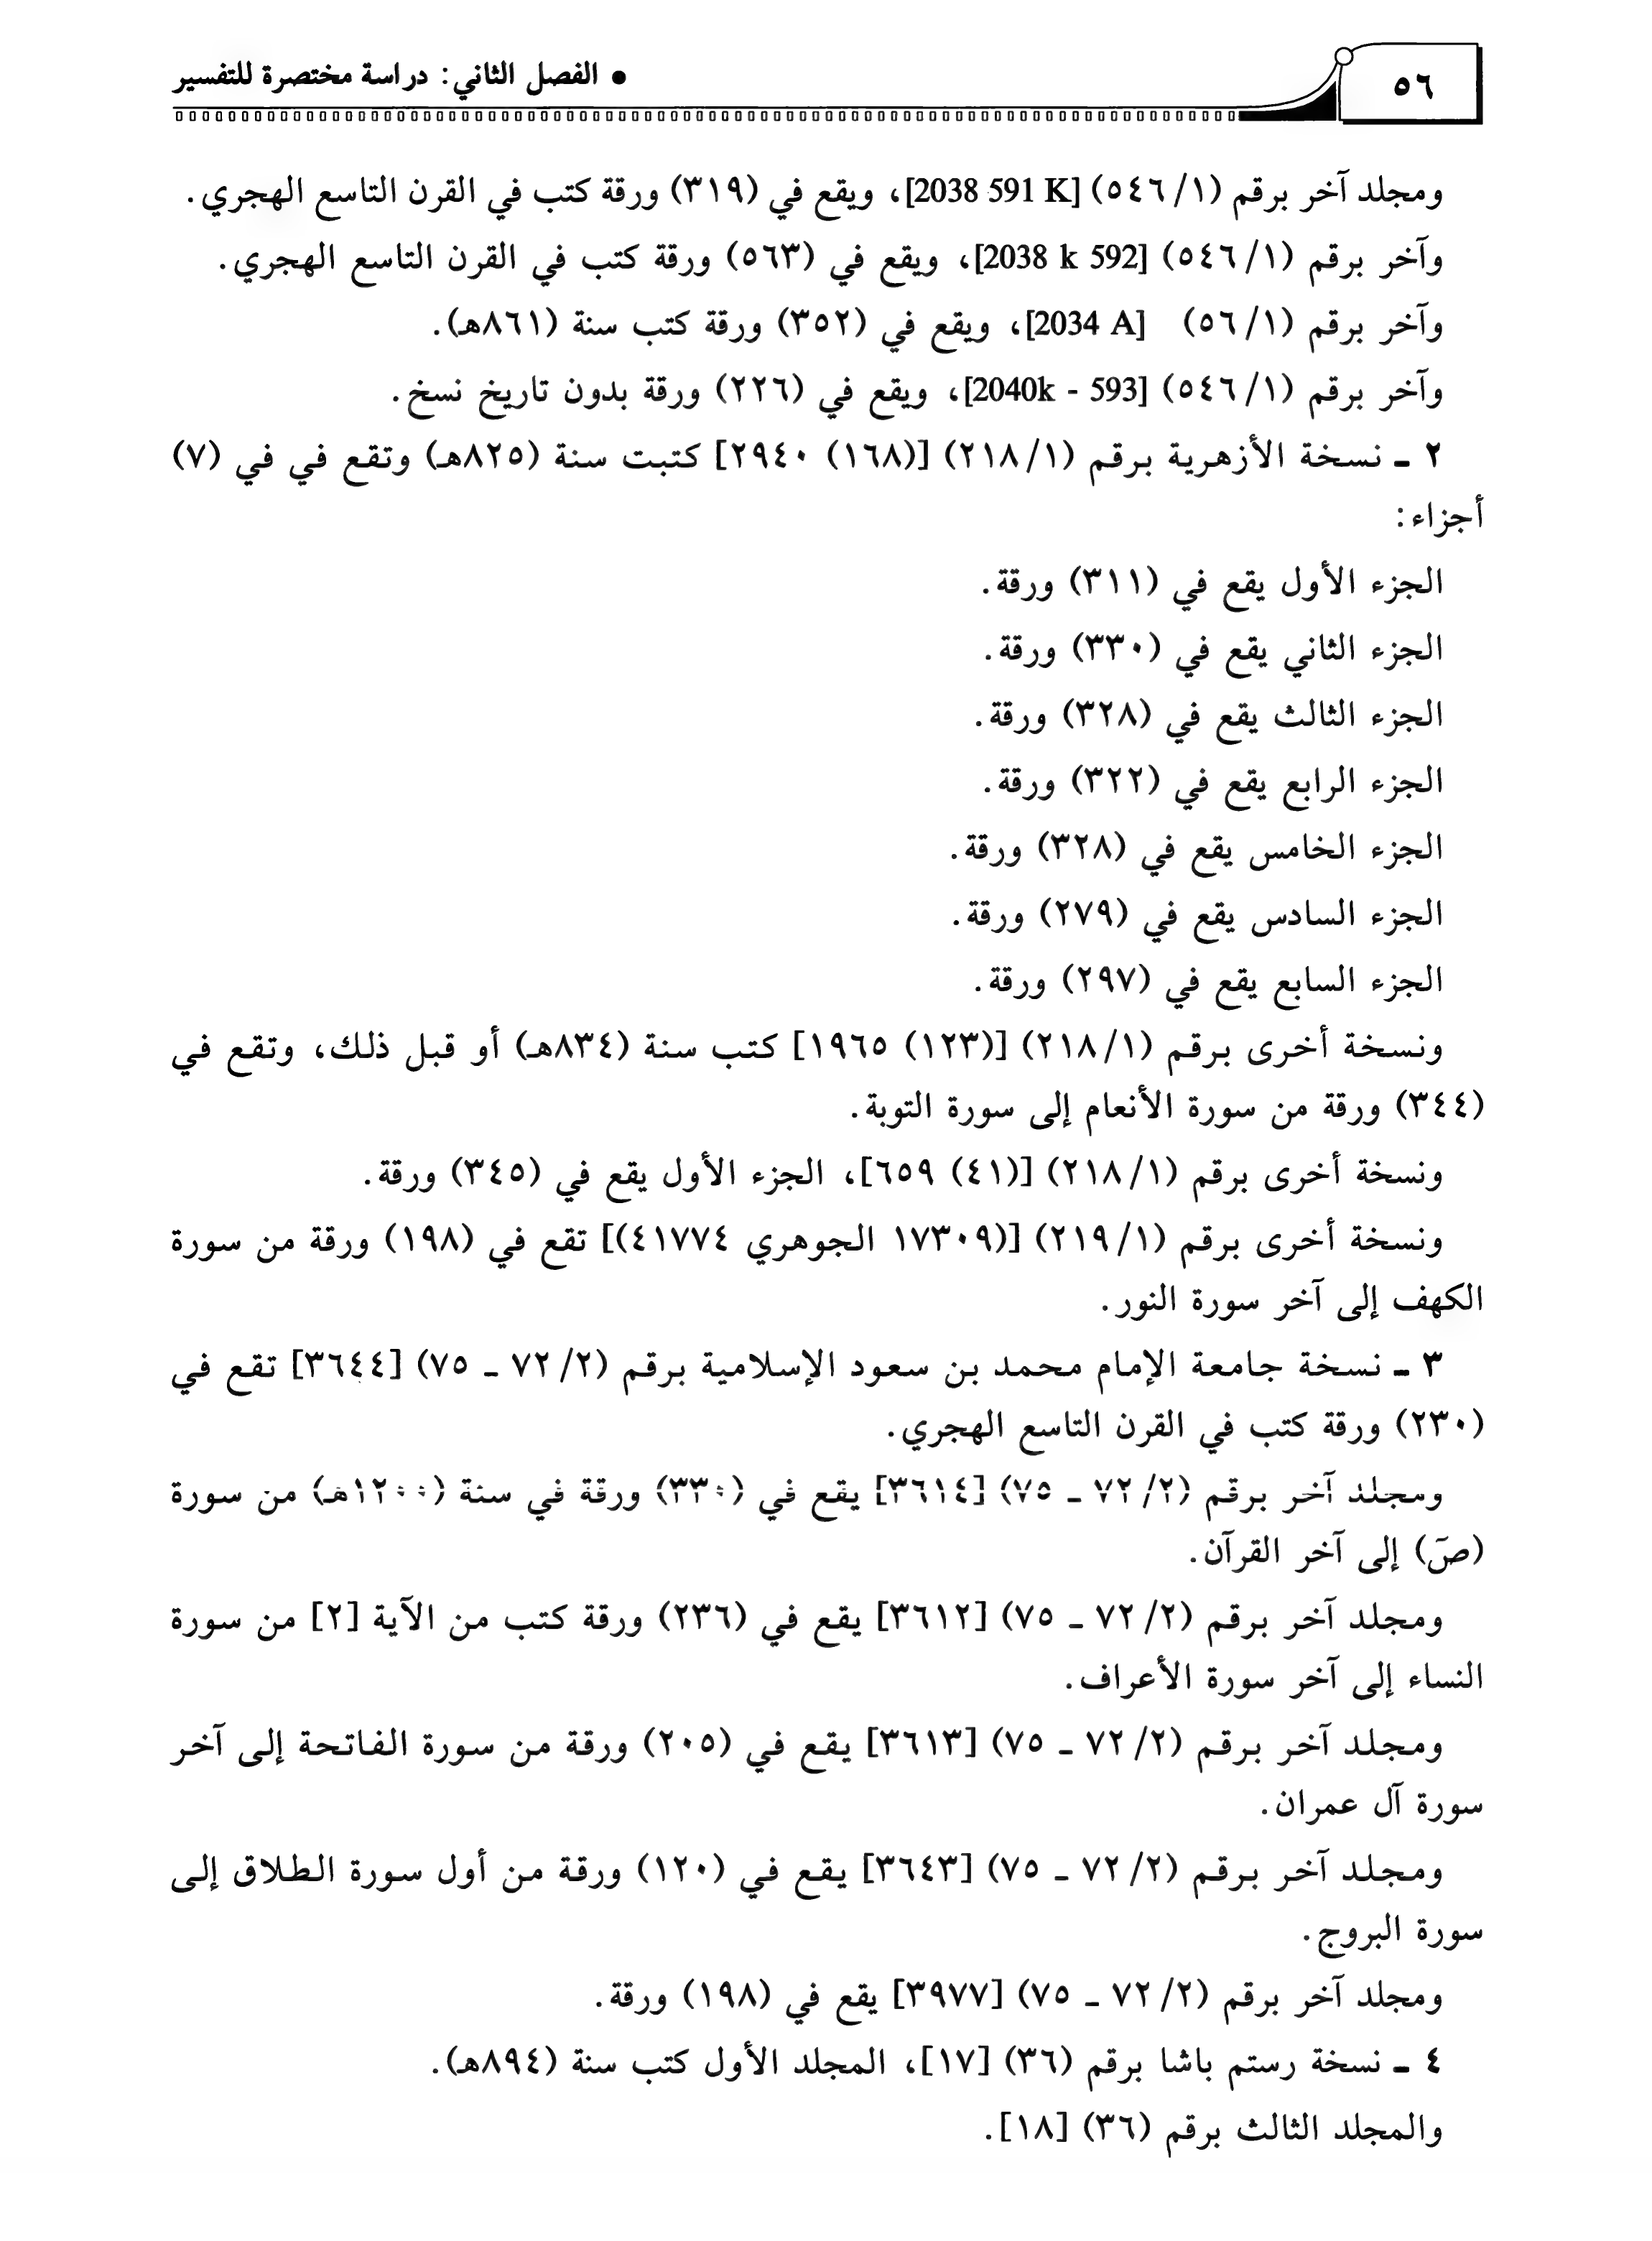 ٥٦
• الفصل الثاني: دراسة مختصرة للتفسير
ومجلد آخر برقم (٥٤٦/١) [2038 591 K]، ويقع في (٣١٩) ورقة كتب في القرن التاسع الهجري.
وآخر برقم (٥٤٦/١) [2038 k 592]، ويقع في (٥٦٣) ورقة كتب في القرن التاسع الهجري.
وآخر برقم (٥٦/١) [2034 A]، ويقع في (٣٥٢) ورقة كتب سنة (٨٦١هـ).
وآخر برقم (٥٤٦/١) [2040k - 593]، ويقع في (٢٢٦) ورقة بدون تاريخ نسخ.
٢ ـ نسخة الأزهرية برقم (٢١٨/١) [(١٦٨) ٢٩٤٠] كتبت سنة (٨٢٥هـ) وتقع في في (٧)
أجزاء:
الجزء الأول يقع في (٣١١) ورقة.
الجزء الثاني يقع في (٣٣٠) ورقة.
الجزء الثالث يقع في (٣٢٨) ورقة.
الجزء الرابع يقع في (٣٢٢) ورقة.
الجزء الخامس يقع في (٣٢٨) ورقة.
الجزء السادس يقع في (٢٧٩) ورقة.
الجزء السابع يقع في (٢٩٧) ورقة.
ونسخة أخرى برقم (٢١٨/١) [(١٢٣) ١٩٦٥] كتب سنة (٨٣٤هـ) أو قبل ذلك، وتقع في
(٣٤٤) ورقة من سورة الأنعام إلى سورة التوبة.
ونسخة أخرى برقم (٢١٨/١) [(٤١) ٦٥٩]، الجزء الأول يقع في (٣٤٥) ورقة.
ونسخة أخرى برقم (٢١٩/١) [(١٧٣٠٩ الجوهري ٤١٧٧٤)] تقع في (١٩٨) ورقة من سورة
الكهف إلى آخر سورة النور.
٣ ـ نسخة جامعة الإمام محمد بن سعود الإسلامية برقم (٧٢/٢ ـ ٧٥) [٣٦٤٤] تقع في
(٢٣٠) ورقة كتب في القرن التاسع الهجري.
ومجلد آخر برقم (٧٢/٢ ـ ٧٥) [٣٦١٤] يقع في (٣٣٠) ورقة في سنة (١٢٠٠هـ) من سورة
(صٓ) إلى آخر القرآن.
ومجلد آخر برقم (٧٢/٢ ـ ٧٥) [٣٦١٢] يقع في (٢٣٦) ورقة كتب من الآية [٢] من سورة
النساء إلى آخر سورة الأعراف.
ومجلد آخر برقم (٧٢/٢ ـ ٧٥) [٣٦١٣] يقع في (٢٠٥) ورقة من سورة الفاتحة إلى آخر
سورة آل عمران.
ومجلد آخر برقم (٧٢/٢ ـ ٧٥) [٣٦٤٣] يقع في (١٢٠) ورقة من أول سورة الطلاق إلى
سورة البروج.
ومجلد آخر برقم (٧٢/٢ ـ ٧٥) [٣٩٧٧] يقع في (١٩٨) ورقة.
٤ ـ نسخة رستم باشا برقم (٣٦) [١٧]، المجلد الأول كتب سنة (٨٩٤هـ).
والمجلد الثالث برقم (٣٦) [١٨].